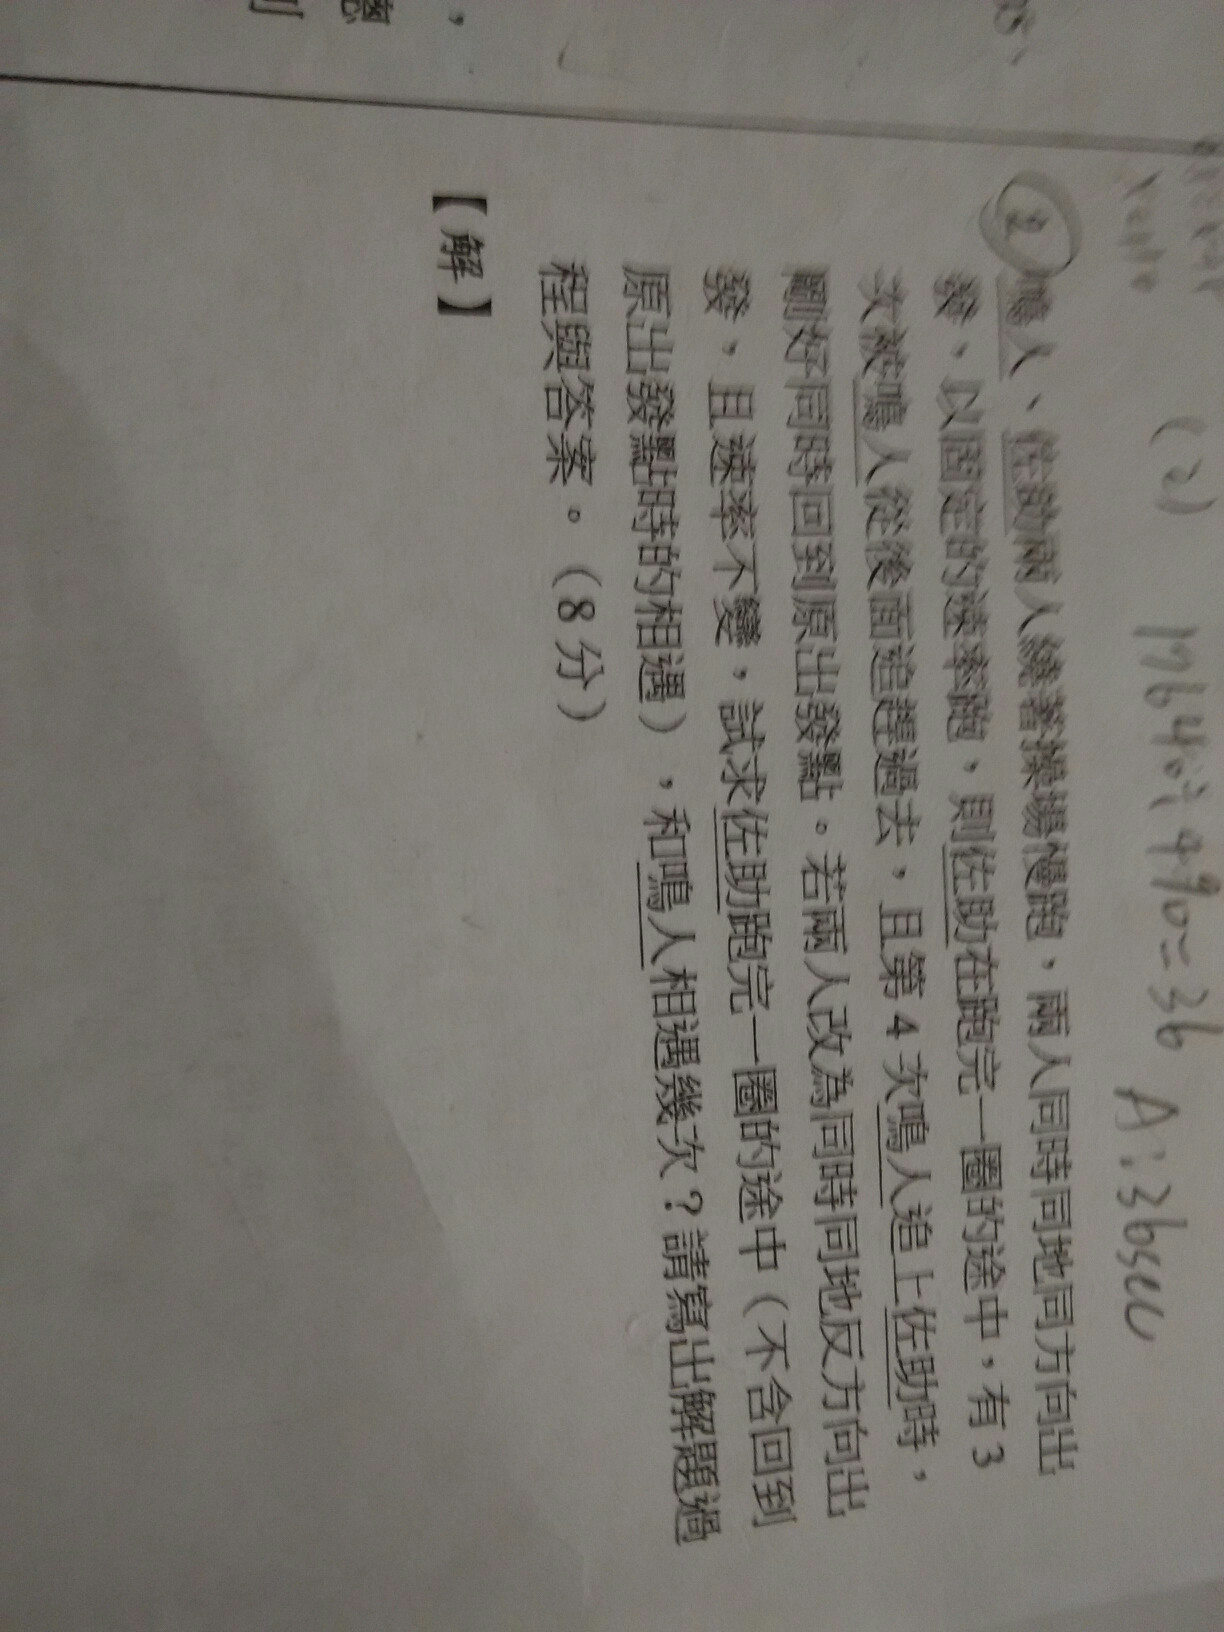 (2) 1764
A：36sec
2. 鳴人、佐助兩人繞著操場慢跑，兩人同時同地同方向出
發，以固定的速率跑，則佐助在跑完一圈的途中，有3
次被鳴人從後面追趕過去，且第4次鳴人追上佐助時，
剛好同時回到原出發點。若兩人改為同時同地反方向出
發，且速率不變，試求佐助跑完一圈的途中（不含回到
原出發點時的相遇），和鳴人相遇幾次？請寫出解題過
程與答案。（8分）
【解】